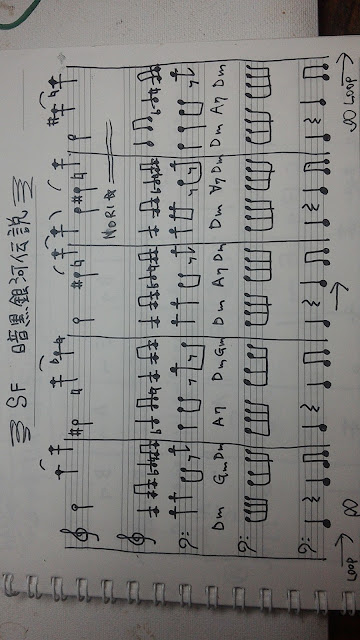 SF 暗黒銀河伝説
NORI☆
Dm Gm Dm A7 Dm Gm Dm A7 Dm Dm A7 Dm Dm A7 Dm
LOOP → ∞ → ∞ LOOP →